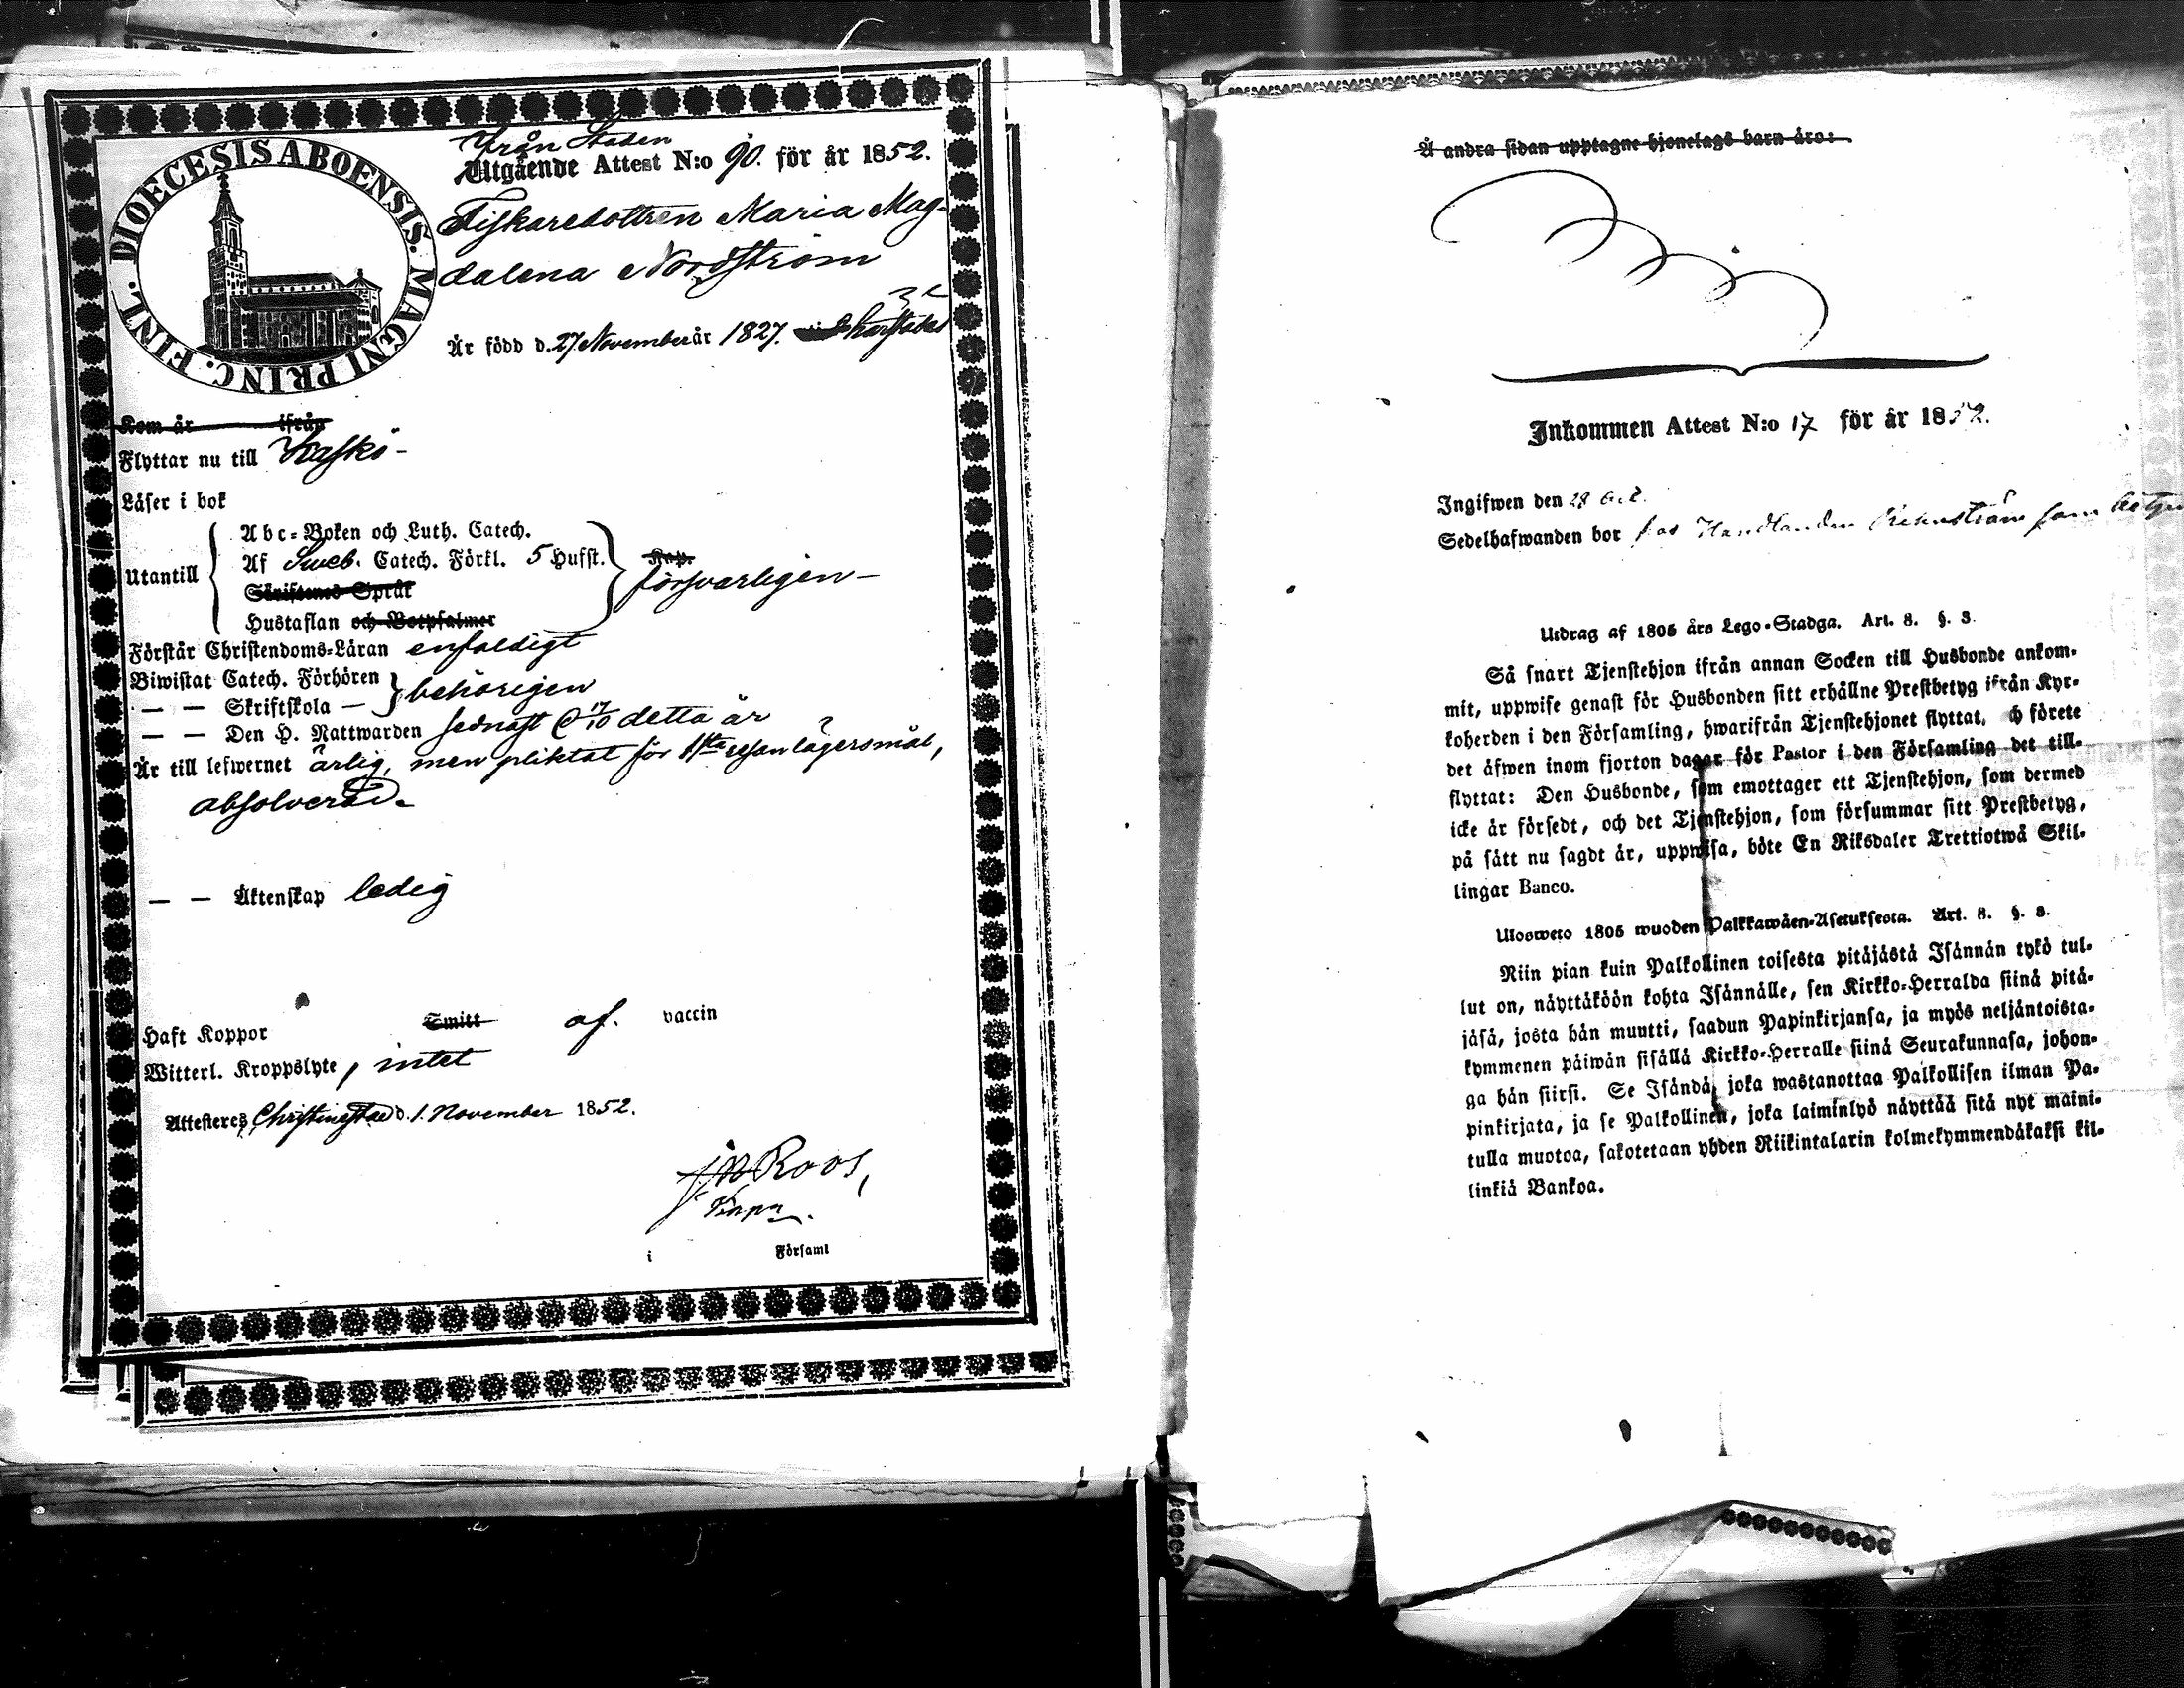 DIOECESIS ABOENSIS. MAGNI PRINC. FINL.
Från Staden
Utgående Attest N:o 90. för år 1852.
Fiskaredottren Maria Mag-
dalena Nordström
Är född d. 27 November år 1827.
Kom år ifrån
Flyttar nu till Kaskö -
Läser i bok
Abc-Boken och Luth. Catech.
Utantill Af Sweb. Catech. Förkl. 5 Hufst. Kap.
försvarligen -
Skriftenes Språk
Hustaflan och Botpsalmer
Förstår Christendoms-Läran enfaldigt
Biwistat Catech. Förhören behörigen
— — Skriftskola —
— — Den H. Nattwarden sednast d 17/10 detta år
Är till lefwernet ärlig, men pliktat för 1sta resan lägersmål,
absolverad.
— — Äktenskap ledig
Haft Koppor Smitt af. vaccin
Witterl. Kroppslyte, intet
Attesteres Christinestad d. 1. November 1852.
Roos,
i Församl
Å andra sidan upptagne hjonelags barn äro:
Inkommen Attest N:o 17 för år 1852.
Ingifwen den 28
Sedelhafwanden bor hos Handlanden som
Utdrag af 1805 års Lego-Stadga. Art. 8. §. 3.
Så snart Tjenstehjon ifrån annan Socken till Husbonde ankom-
mit, uppwise genast för Husbonden sitt erhållne Prestbetyg ifrån Kyr-
koherden i den Församling, hwarifrån Tjenstehjonet flyttat, och förete
det äfwen inom fjorton dagar för Pastor i den Församling det till-
flyttat: Den Husbonde, som emottager ett Tjenstehjon, som dermed
icke är försedt, och det Tjenstehjon, som försummar sitt Prestbetyg,
på sätt nu sagdt är, uppwisa, böte En Riksdaler Trettiotwå Skil-
lingar Banco.
Ulosweto 1805 wuoden Palkkawäen-Asetuksesta. Art. 8. §. 3.
Niin pian kuin Palkollinen toisesta pitäjästä Isännän tykö tul-
lut on, näyttäköön kohta Isännälle, sen Kirkko-Herralda siinä pitä-
jäsä, josta hän muutti, saadun Papinkirjansa, ja myös neljäntoista-
kymmenen päiwän sisällä Kirkko-Herralle siinä Seurakunnasa, johon-
ga hän siirsi. Se Isändä, joka wastanottaa Palkollisen ilman Pa-
pinkirjata, ja se Palkollinen, joka laiminlyö näyttää sitä nyt maini-
tulla muotoa, sakotetaan yhden Riikintalarin kolmekymmendäkaksi kil-
linkiä Bankoa.